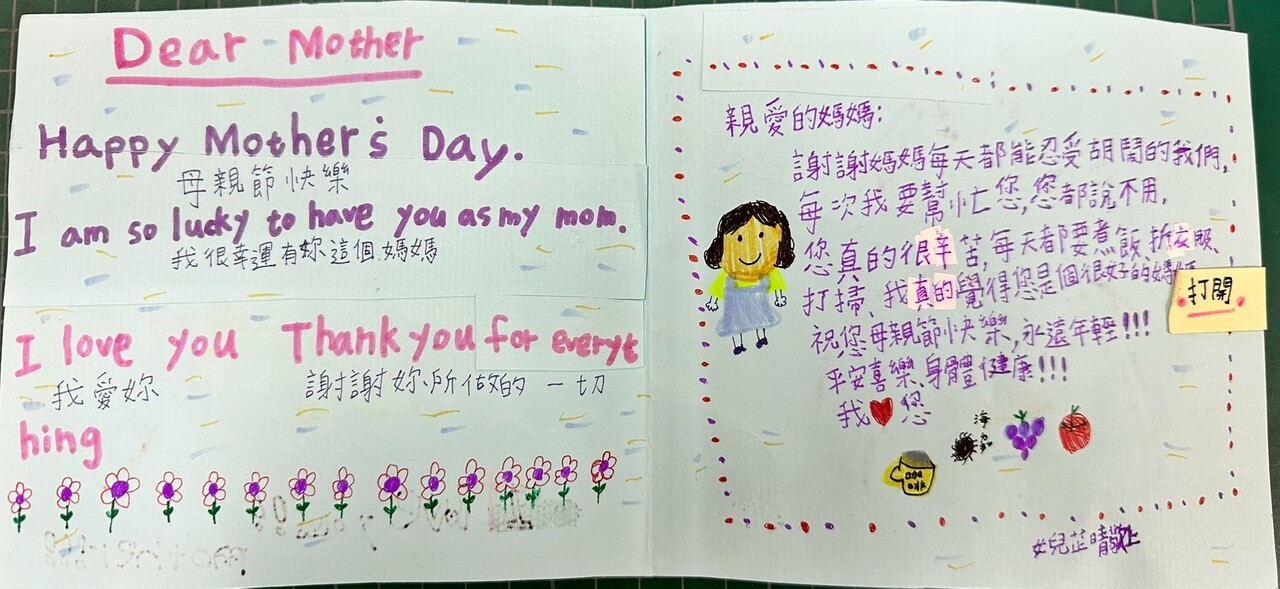 Dear Mother
Happy Mother's Day.
母親節快樂
I am so lucky to have you as my mom.
我很幸運有妳這個媽媽
I love you Thank you for everyt
我愛妳 謝謝妳所做的一切
hing
親愛的媽媽:
謝謝媽媽每天都能忍受胡鬧的我們,
每次我要幫忙您,您都說不用,
您真的很辛苦,每天都要煮飯、折衣服、
打掃、我真的覺得您是個很好的媽媽
打開
祝您母親節快樂,永遠年輕!!!
平安喜樂、身體健康!!!
我 您
海膽
咖啡
女兒芷晴敬上